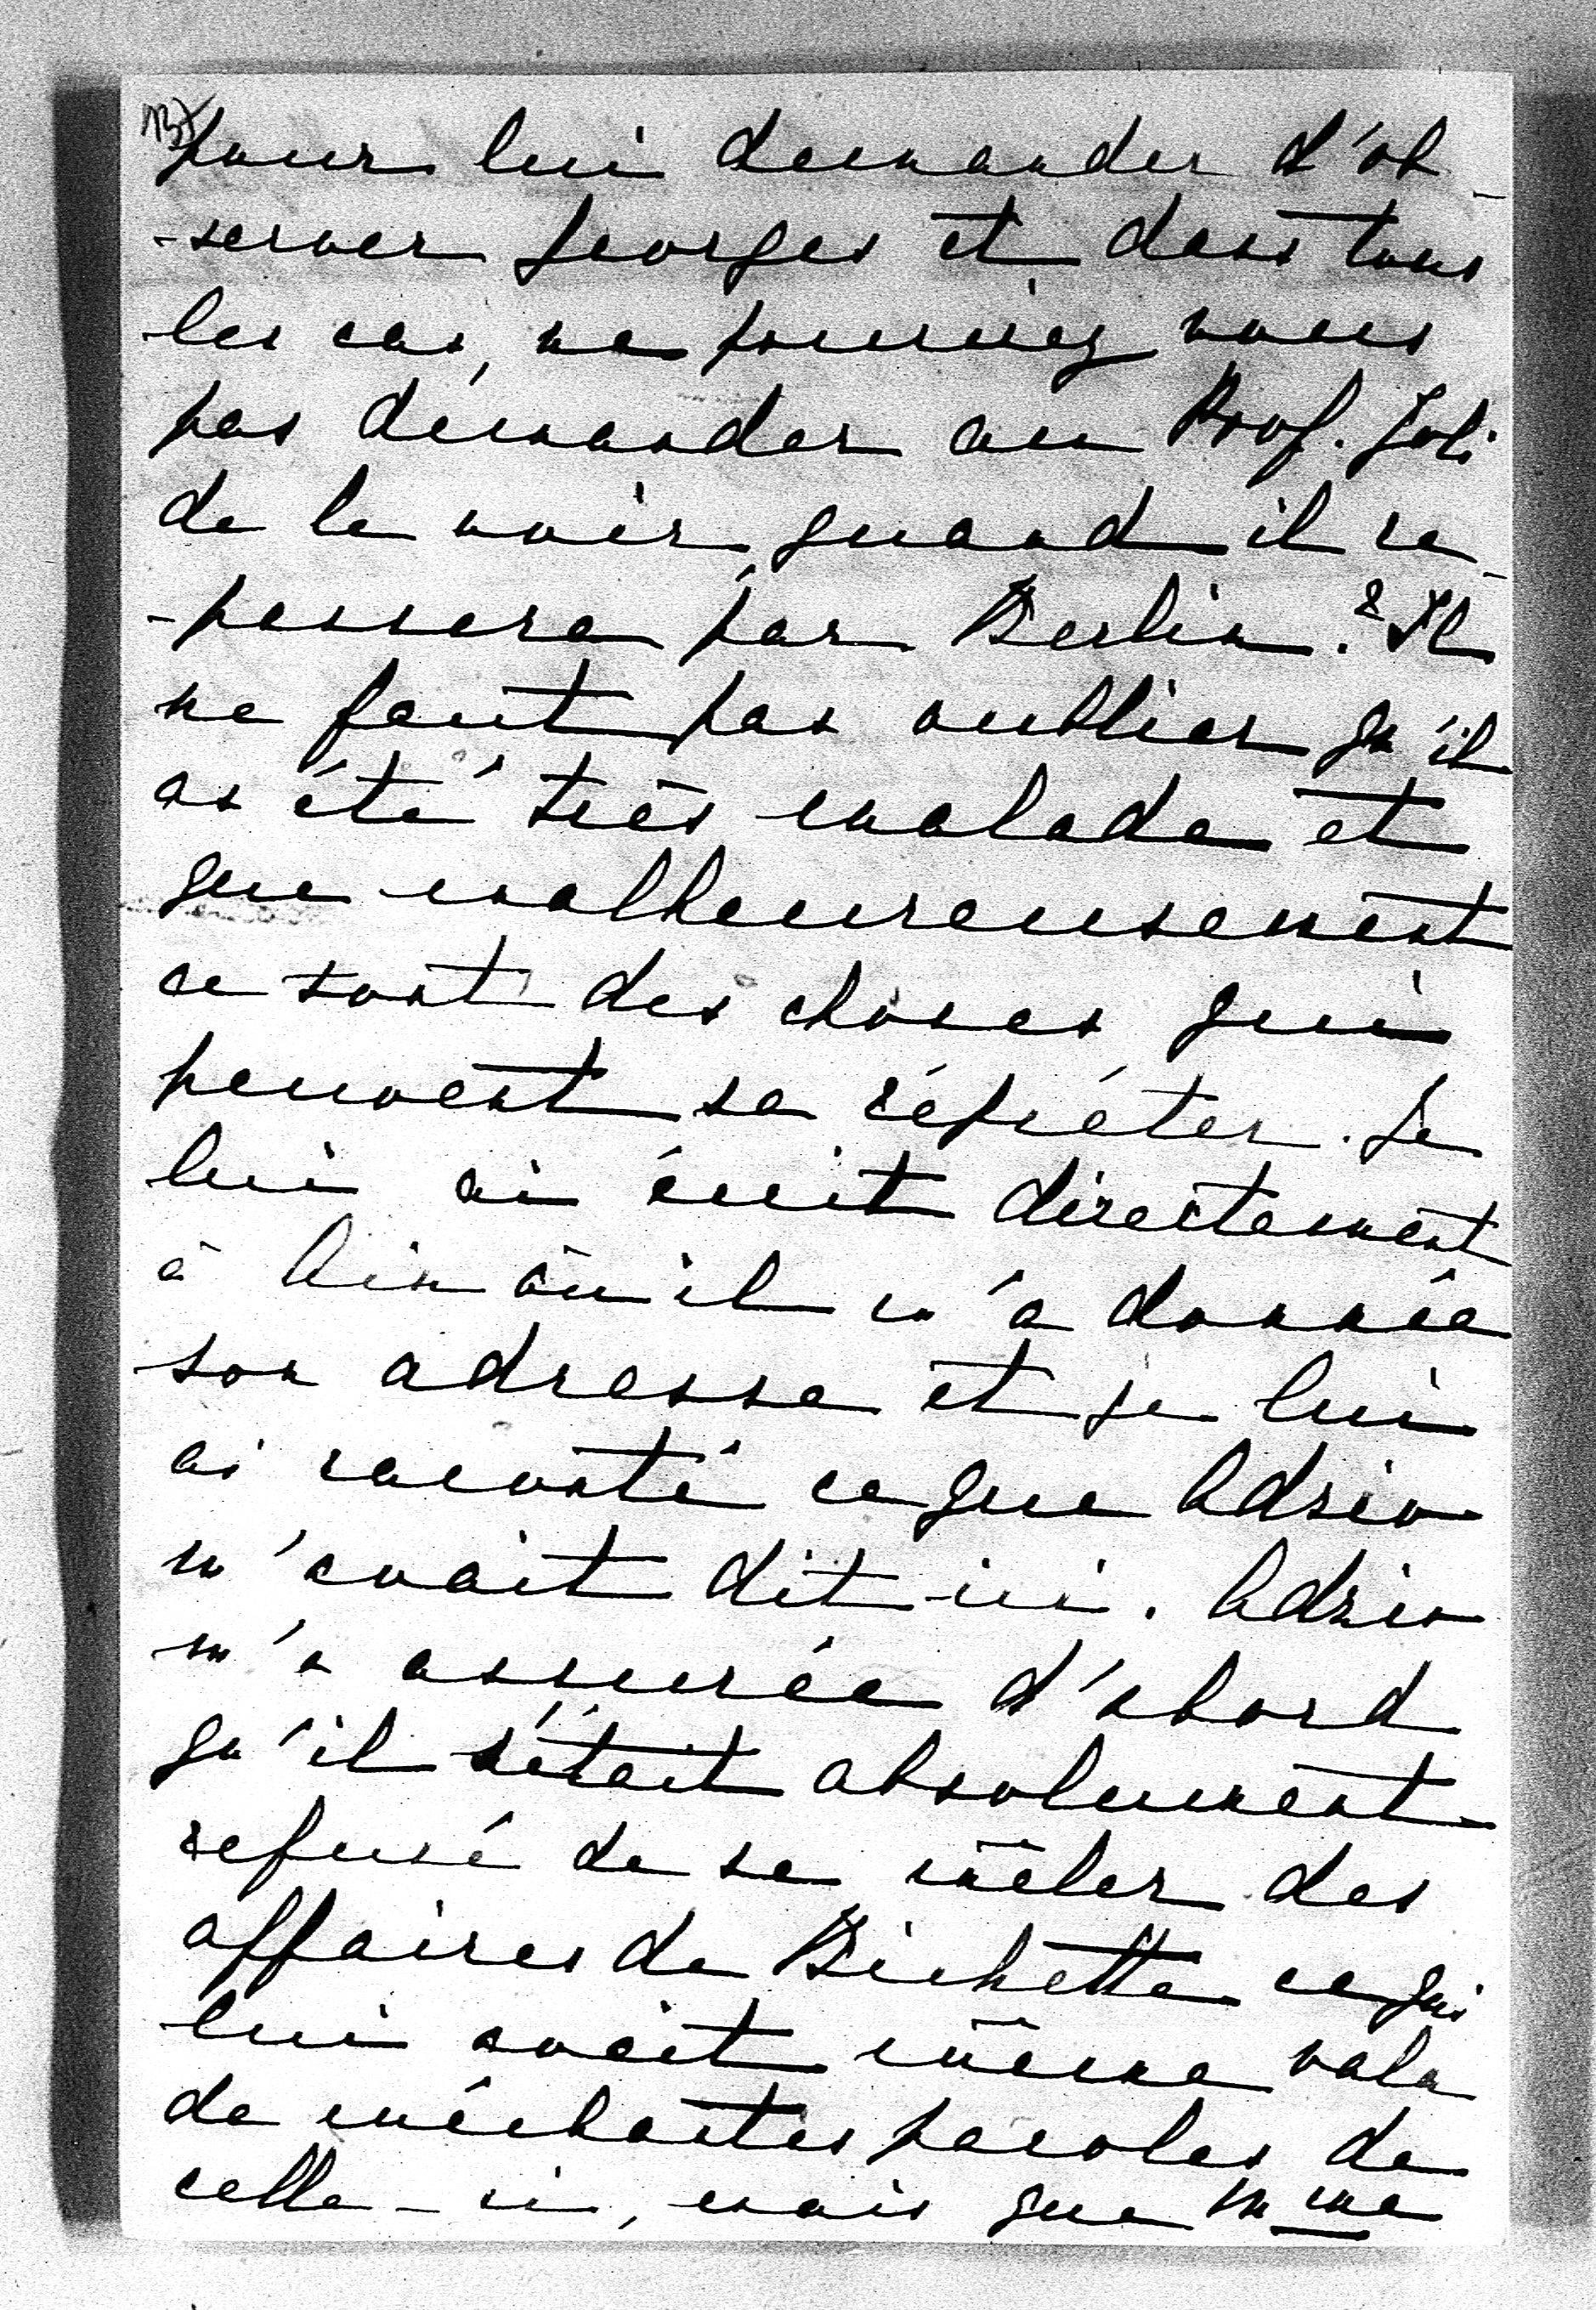 13)
pour lui demander d'ob-
-server Georges et dans tous
les cas, ne pourriez vous
pas demander au Prof. Joli
de le voir quand il re-
-passera par Berlin. ? Il
ne faut pas oublier qu'il
as été très malade et
que malheureusement
ce sont des choses qui
peuvent se répéter. Je
lui ai écrit directement
à Ain où il m'a donnée
son adresse et je lui
ai raconté ce que Adrio
m'avait dit ici. Adrio
m'a assurée d'abord
qu'il s'était absolument
refusé de se mêler des
affaires de Bichette ce qui
lui avait même valu
de méchantes paroles de
celle-ci, mais que Mme